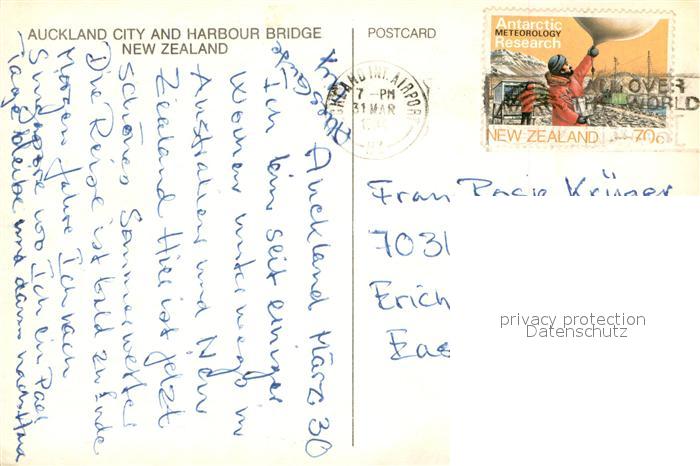 AUCKLAND CITY AND HARBOUR BRIDGE
NEW ZEALAND
POSTCARD
Antarctic
METEOROLOGY
Research
NEW ZEALAND 70c
AUCKLAND INT. AIRPORT
7 - PM
31 MAR
ALL OVER
THE WORLD
Auckland März 30
Ich bin seit einiger
Wochen unterwegs in
Australien und New
Zealand Hier ist jetzt
schönes Sommerwetter
Die Reise ist bald zu Ende
Morgen fahre Ich nach
Singapore wo Ich ein Paar
Tage bleibe und dann nach
Gruß
Frau Krüger
7031
Erich
privacy protection
Datenschutz